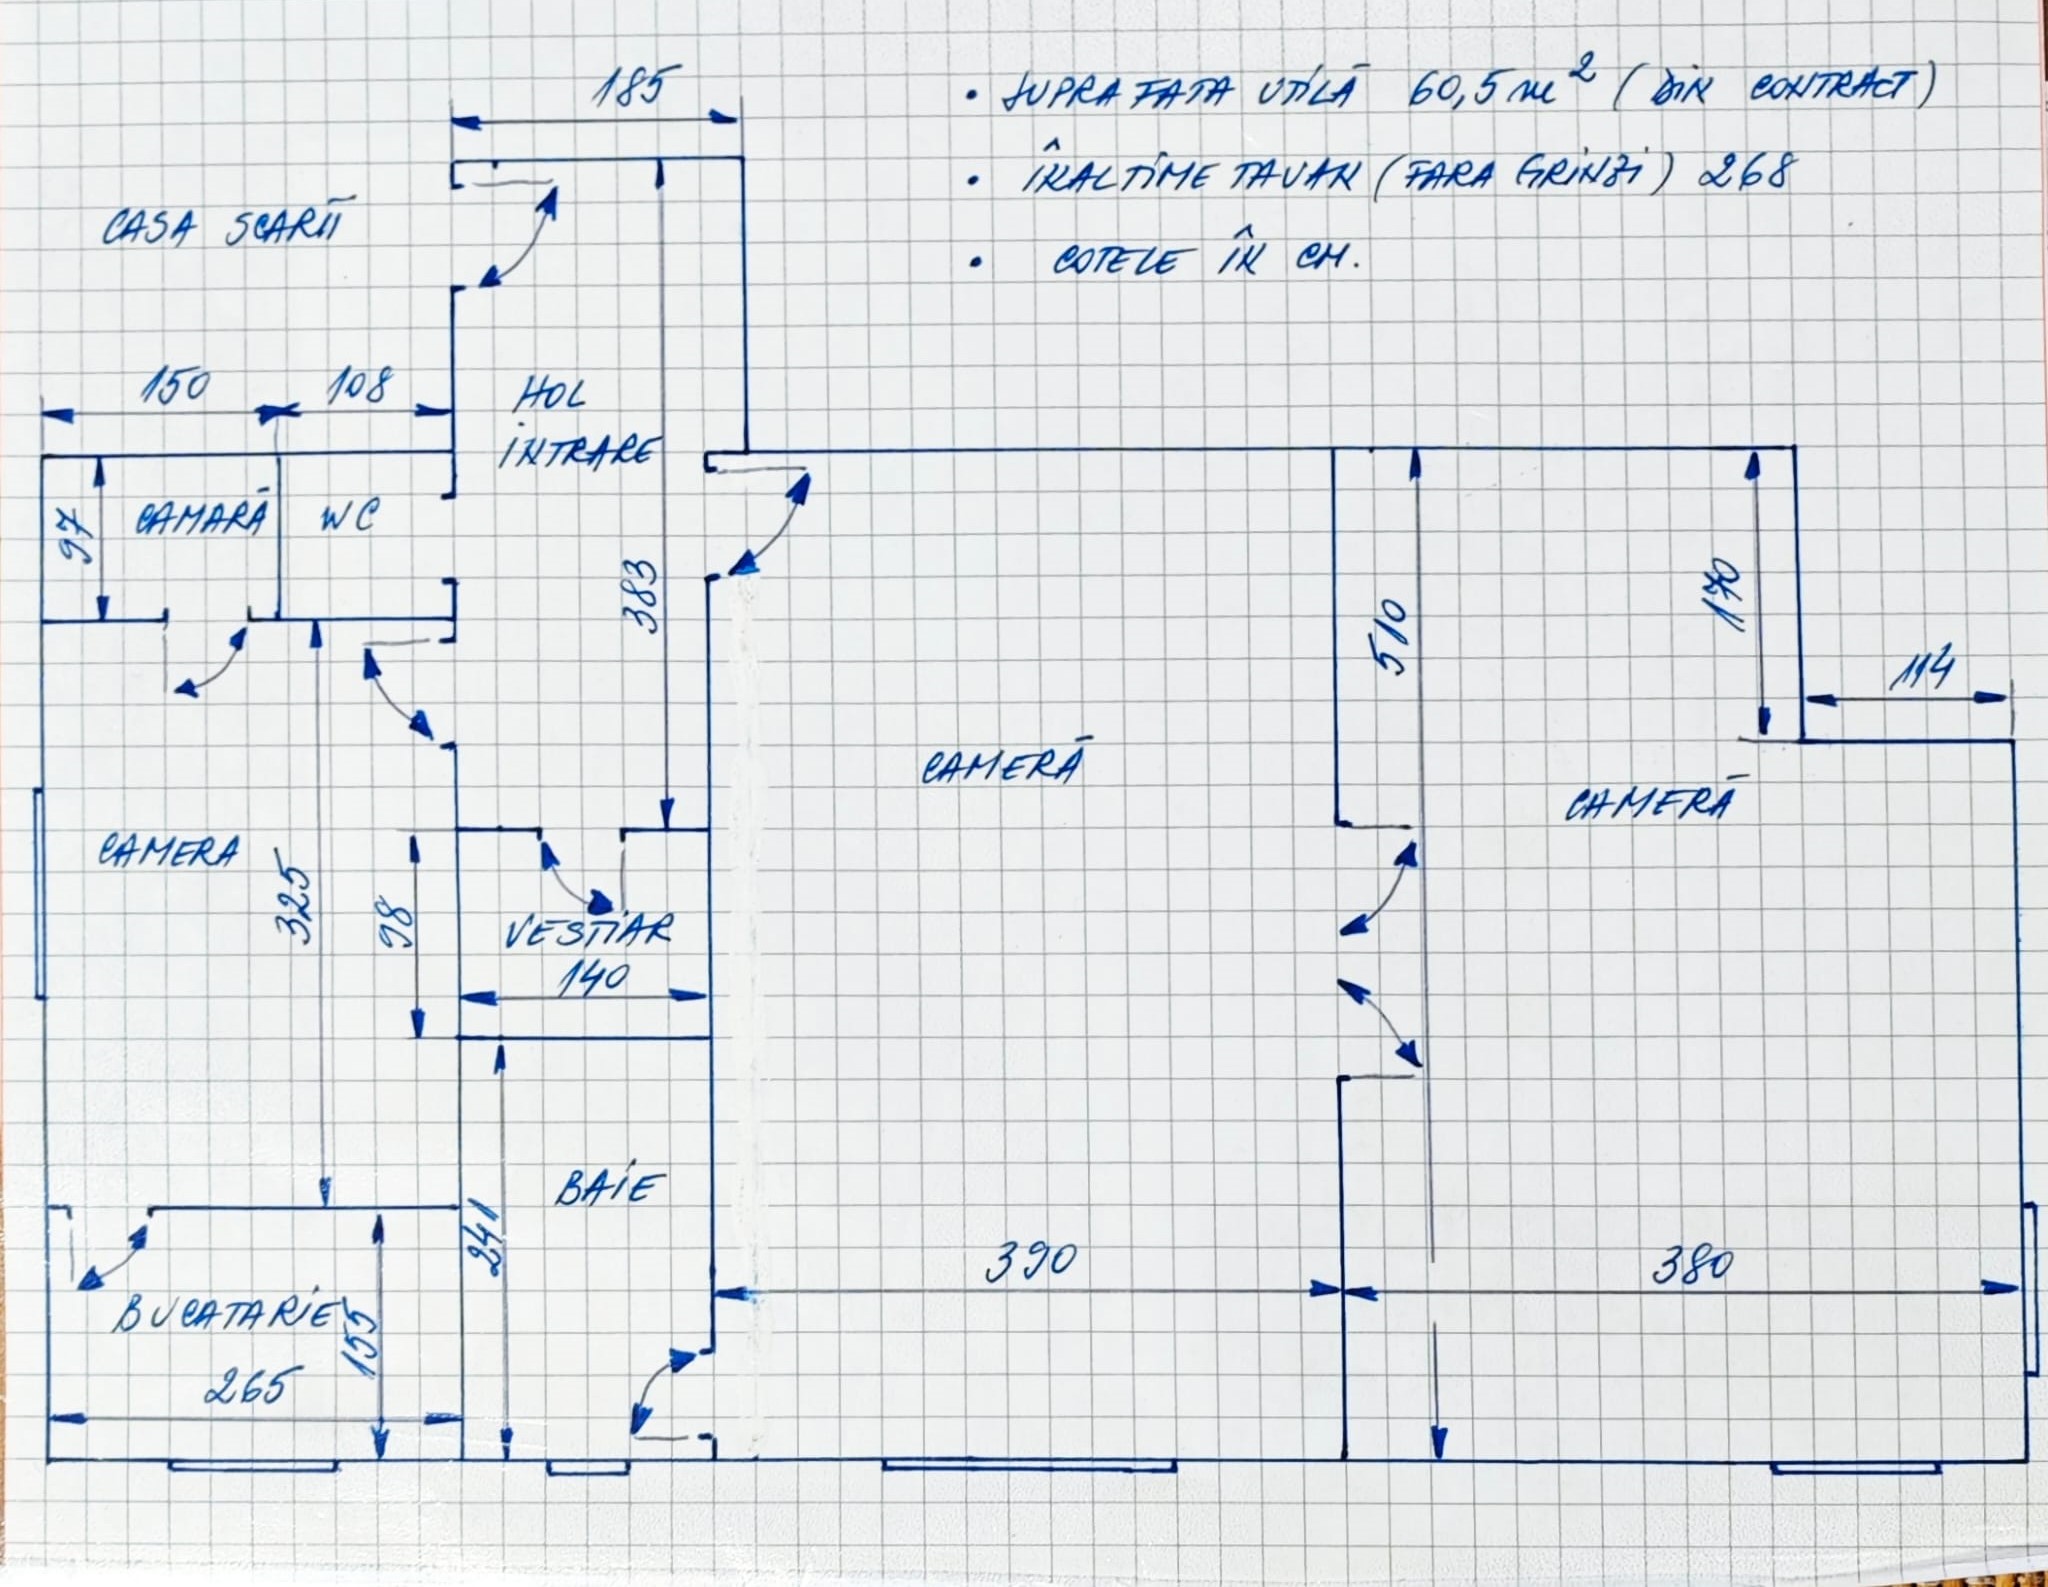 185
• SUPRAFATA UTILĂ 60,5 m² (DIN CONTRACT)
• ÎNALTIME TAVAN (FARA GRINZI) 268
CASA SCARII
• COTELE ÎN CM.
150
108
HOL
INTRARE
97
CAMARĂ
WC
383
510
170
114
CAMERĂ
CAMERĂ
CAMERA
325
98
VESTIAR
140
BAIE
241
390
380
BUCATARIE
155
265